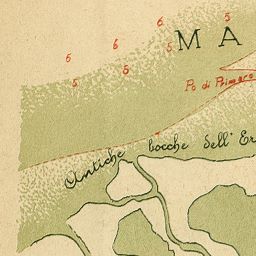 6 6 6 5
MA
5 5 5
Po di Primaro
Antiche bocche dell' Er